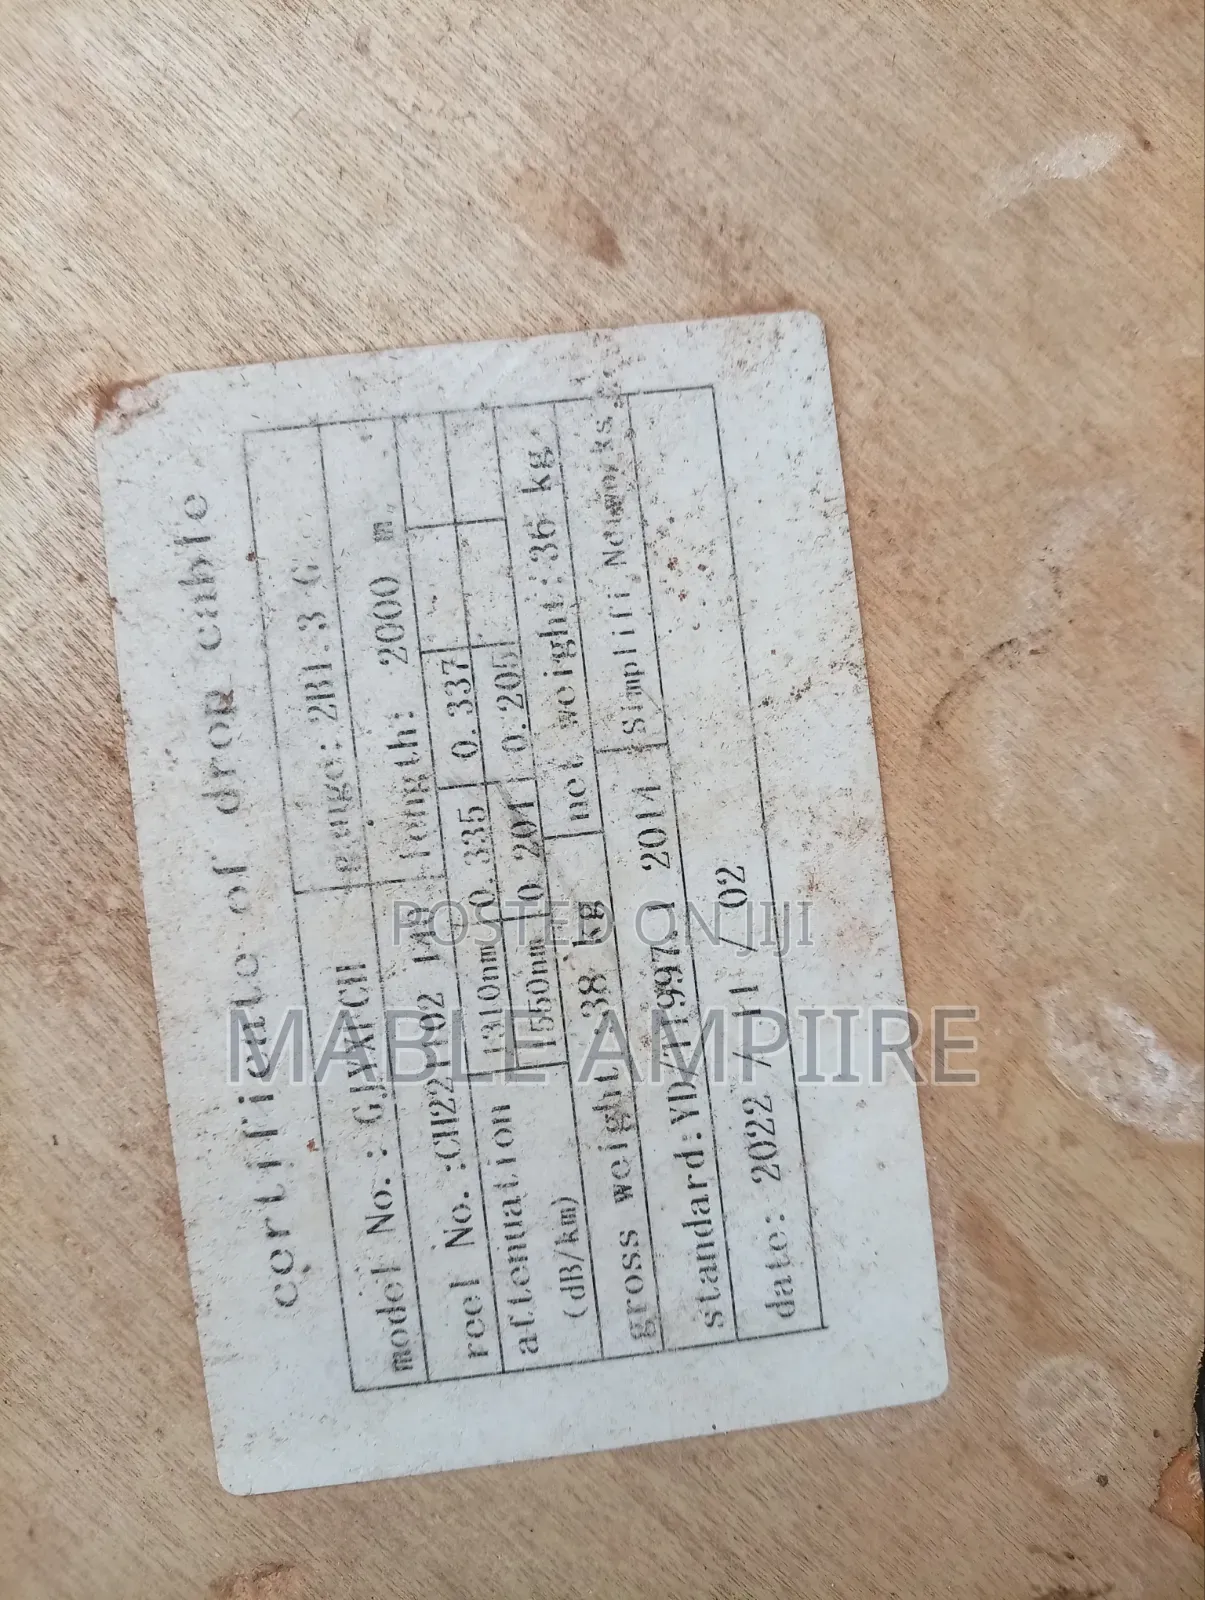 certificate of drop cable
model No.: GJXFCH gauge: 2B1.3 G
reel No.:CH221102 length: 2000 m
attenuation (dB/km) 1310nm 0.335 0.337
1550nm 0.201 0.205
gross weight:38 kg net weight:36 kg
standard:YD/T1997.1 2014 Simplifi Networks
date: 2022 /11 / 02
POSTED ON JIJI
MABLE AMPIIRE